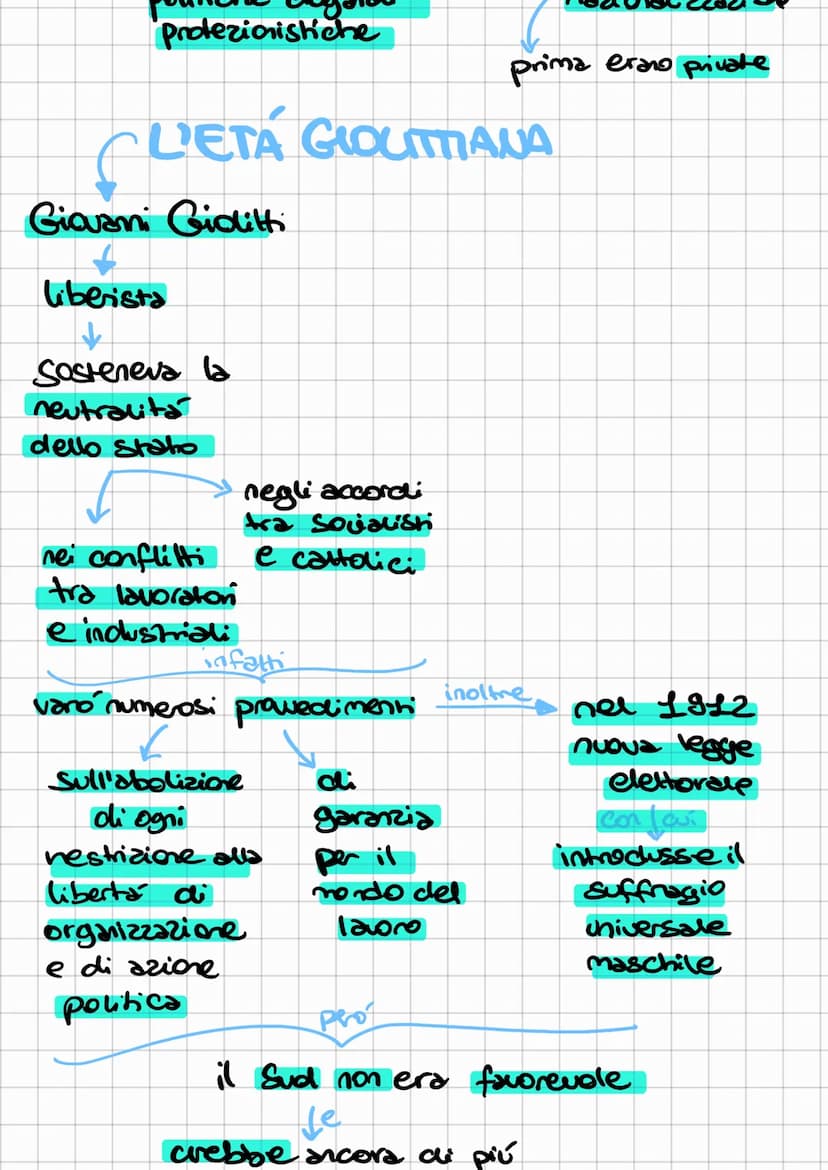 protezionistiche
prima erano private
L'ETÁ GIOLITTIANA
Giovanni Giolitti
liberista
sosteneva la
neutralitá
dello stato
negli accordi
tra socialisti
e cattolici
nei conflitti
tra lavoratori
e industriali
infatti
varó numerosi provvedimenti
inoltre
nel 1912
nuova legge
elettorale
con cui
introdusse il
suffragio
universale
maschile
sull'abolizione
di ogni
restrizione alla
libertá di
organizzazione
e di azione
politica
di
garanzia
per il
mondo del
lavoro
peró
il Sud non era favorevole
e
crebbe ancora di piú